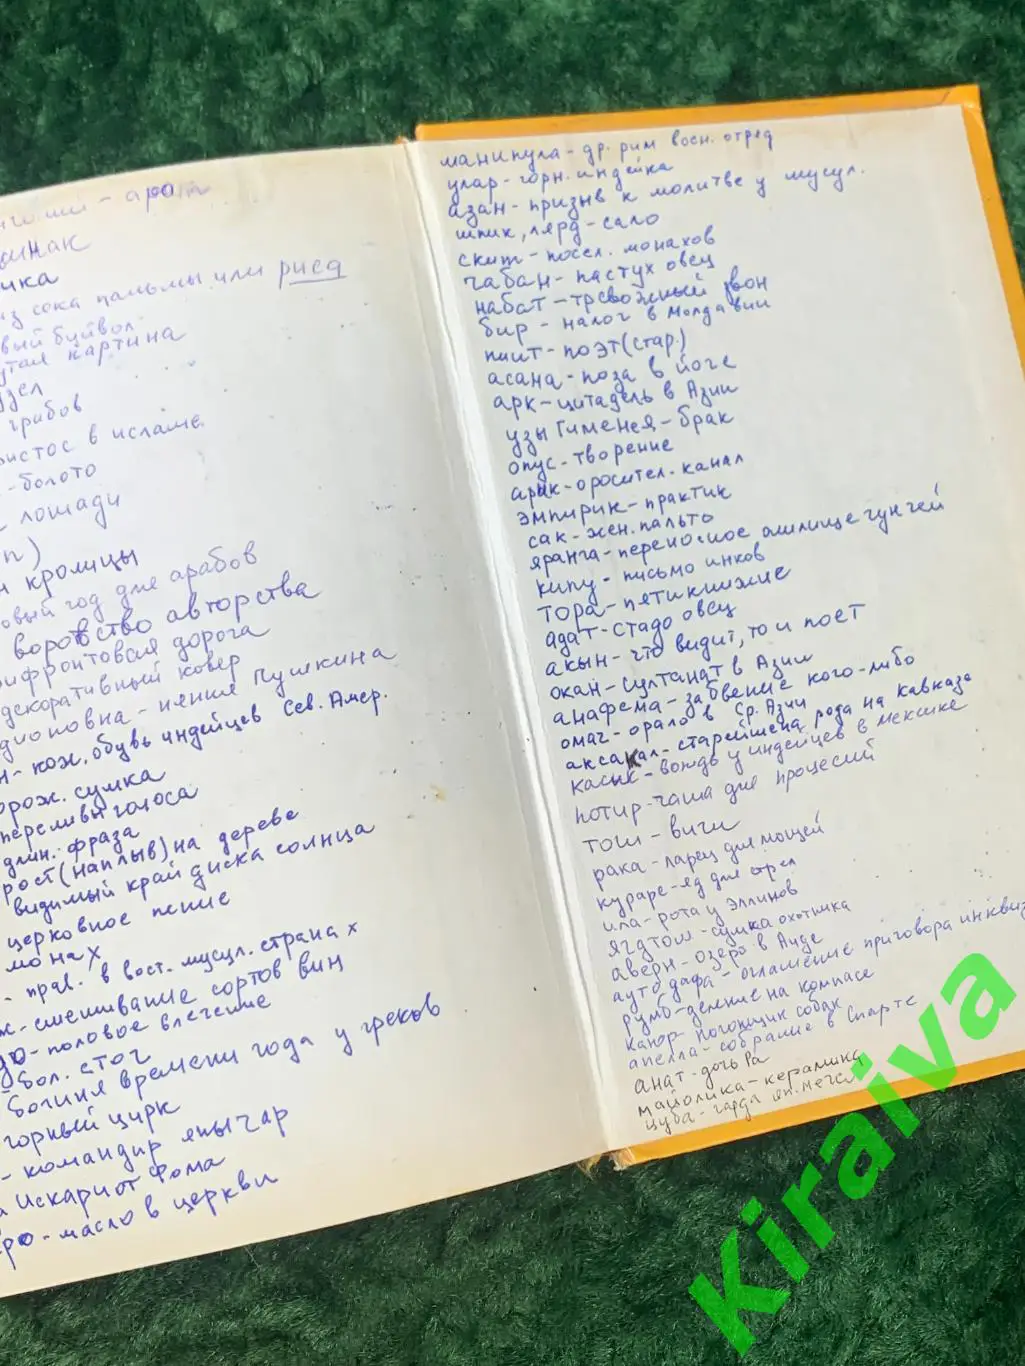 арота
инак
ичка
из сока пальмы или риса
вый буйвол
утая картина
узел
грибов
ристос в исламе
-болото
лошади
п)
н крольцы
овый год для арабов
воровство авторства
рифронтовая дорога
декоративный ковер
дионовна-няня Пушкина
н-кож. обувь индейцев Сев. Амер.
орож. сумка
переливы голоса
длин. фраза
рост(наплыв)на дереве
видимый край диска солнца
церковное пение
монах
- прав. в вост. мусул. странах
ж-смешивание сортов вин
до-половое влечение
бол. стог
богиня времени года у греков
горный цирк
- командир янычар
а Искариот Фома
ро-масло в церкви
манипула-др. рим воен. отряд
улар-горн. индейка
азан-призыв к молитве у мусул.
шпик, лярд-сало
скит-посел. монахов
чабан-пастух овец
набат-тревожный звон
бир-налог в Молдавии
пиит-поэт(стар.)
асана-поза в йоге
арк-цитадель в Азии
узы Гименея-брак
опус-творение
арык-оросител. канал
эмпирик-практик
сак-жен. пальто
яранга-переносное жилище чукчей
кипу-письмо инков
тора-пятикнижие
адат-стадо овец
акын-что видит, то и поет
окан-султанат в Азии
анафема-забвение кого-либо
омач-орало в Ср. Азии
аксакал-старейшена рода на Кавказе
касик-вождь у индейцев в Мексике
потир-чаша для процесий
тоши-виги
рака-ларец для мощей
кураре-яд для стрел
ила-рота у эллинов
ягдташ-сумка охотника
аверн-озеро в Аиде
аутодафэ-оглашение приговора инквиз
румб-деление на компасе
каюр-погонщик собак
апелла-собрание в Спарте
анат-дочь Ра
майолика-керамика
цуба-гарда яп. меча
Kiraiva